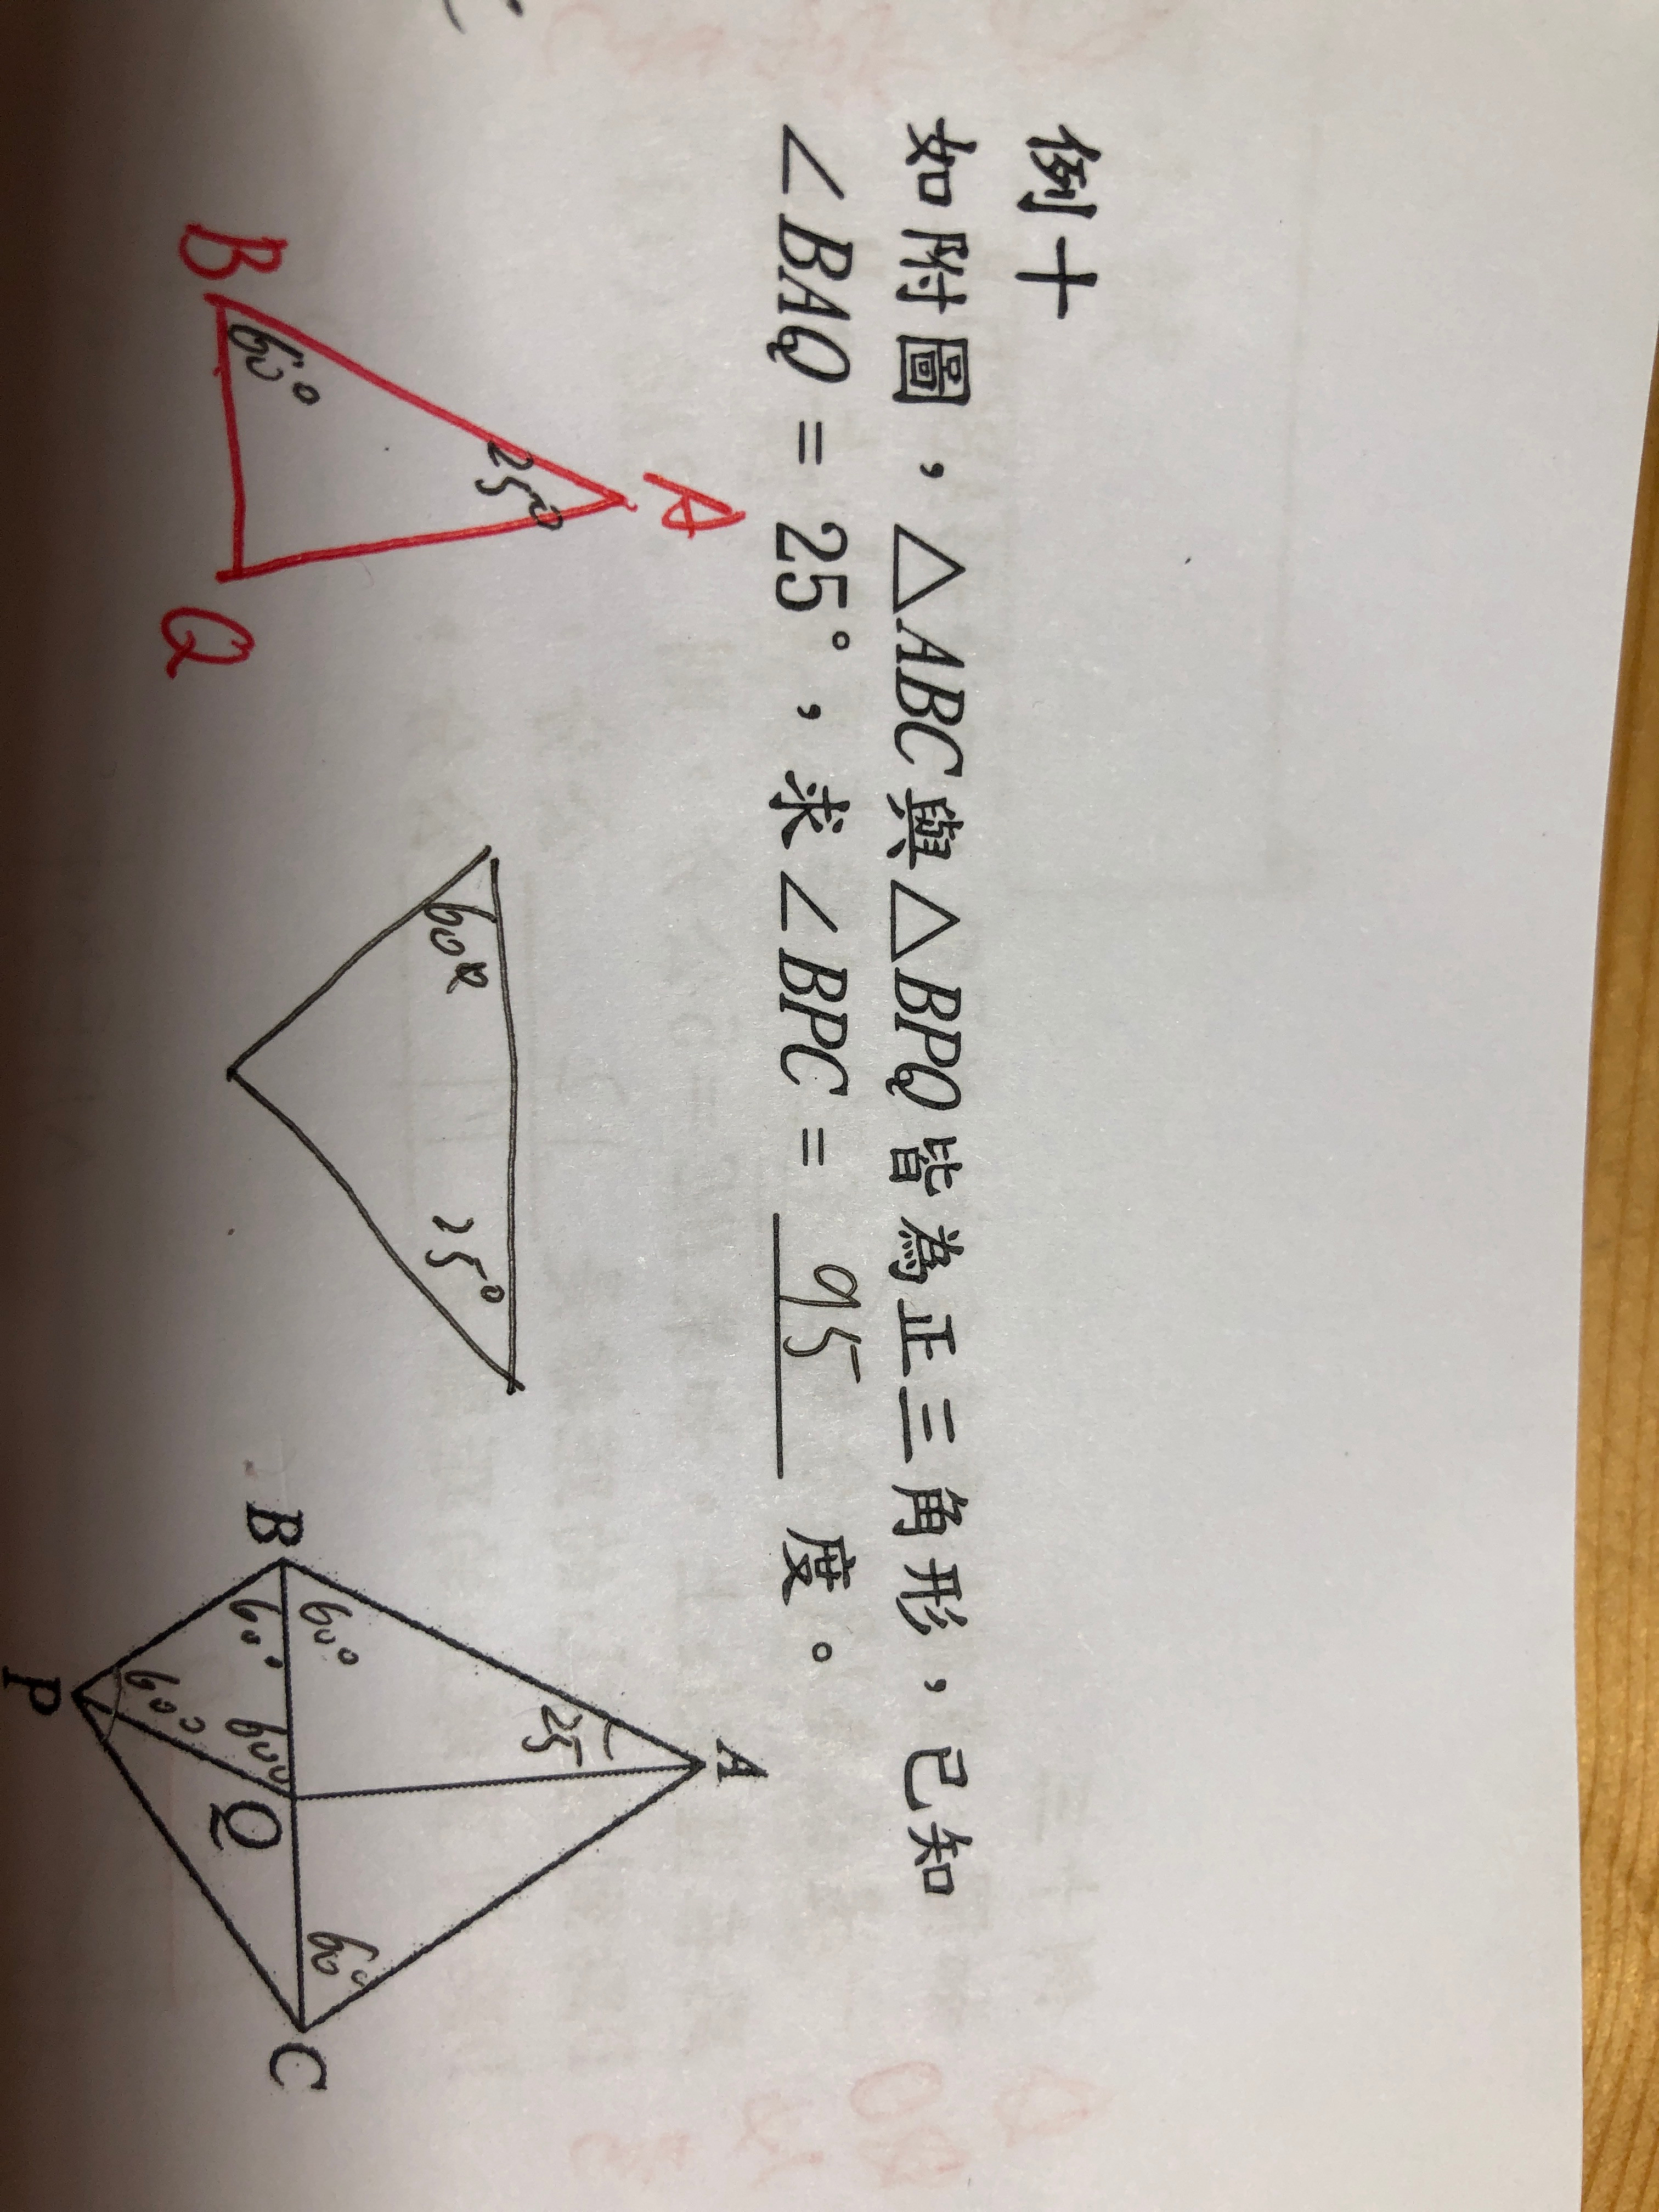 例十
如附圖，△ABC與△BPQ皆為正三角形，已知
∠BAQ = 25°，求∠BPC = 95 度。
A
25°
B
60°
Q
60°
25°
A
25
B
60°
60°
60°
60°
60°
Q
C
P